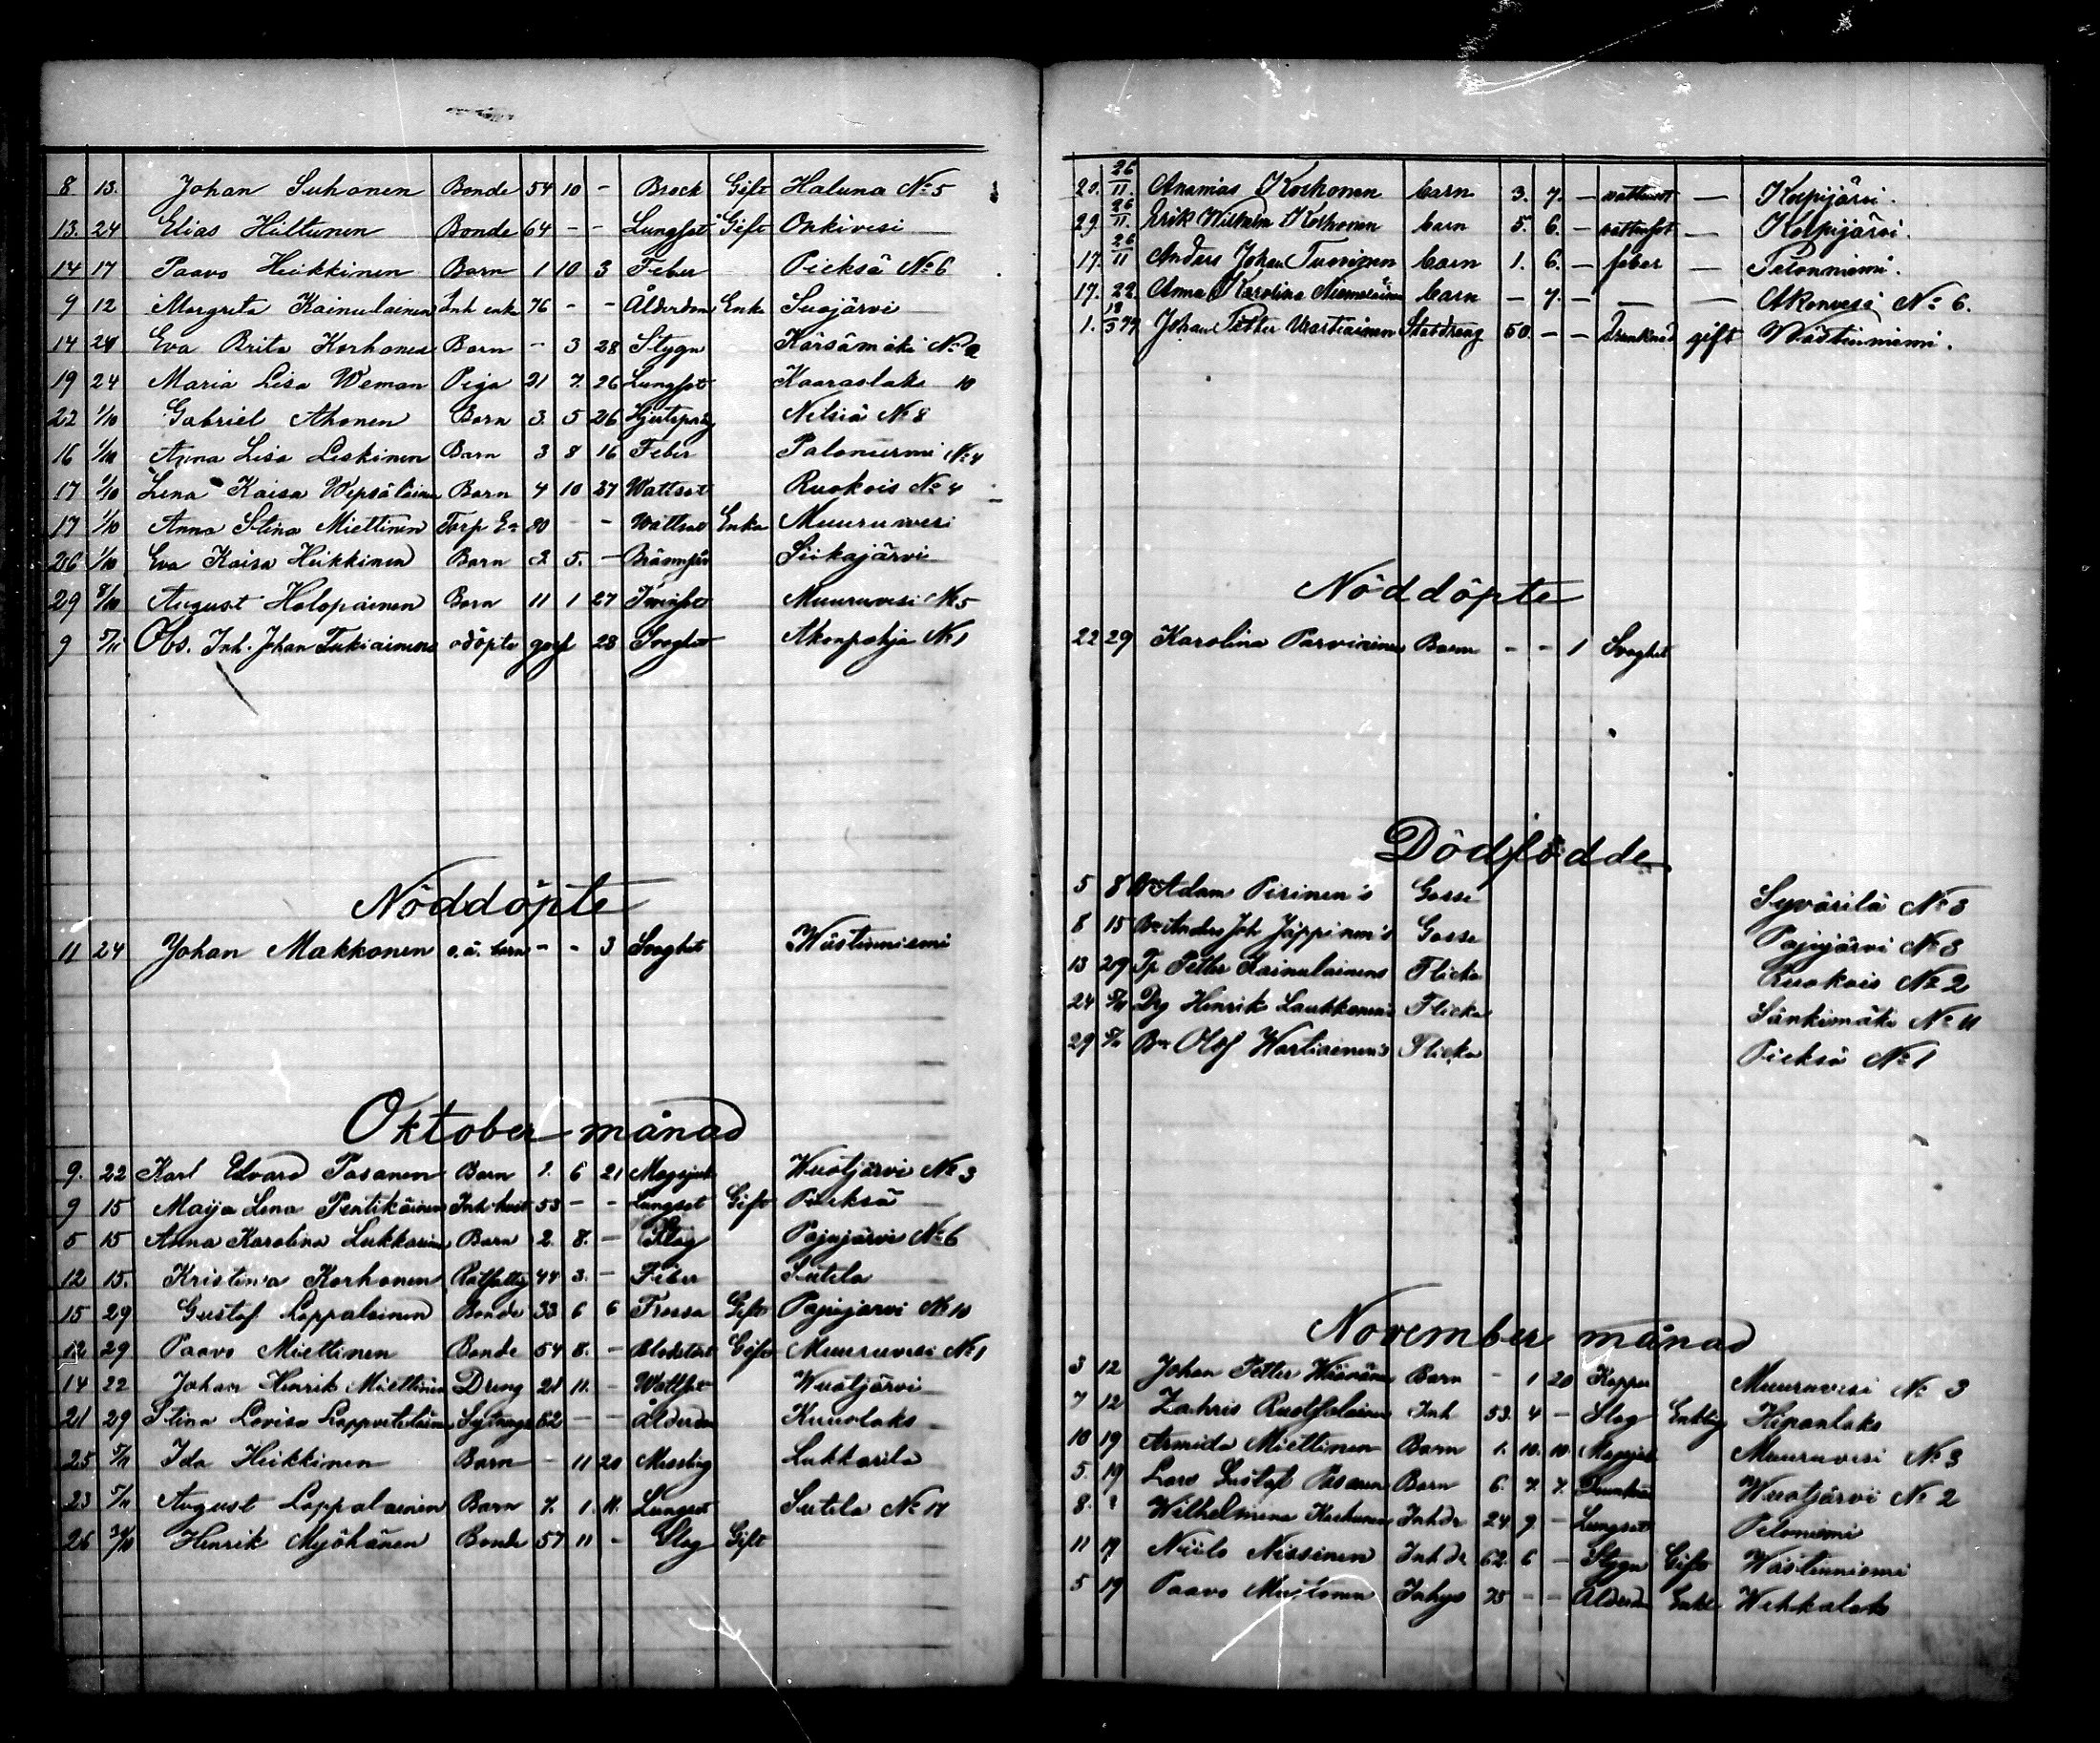 8 13. Johan Suhonen Bonde 54 10 - Brock Gift Haluna No 5
13. 24 Elias Hiltunen Bonde 64 - - Lungsot Gift Onkivesi
14 17 Paavo Heikkinen Barn 1 10 3 Feber Pieksä No 6
9 12 Margreta Kainulainen Inh enka 76 - - Ålderdom Enka Suojärvi
14 24 Eva Brita Korhonen Barn - 3 28 Stygn Kärsämäki No
19 24 Maria Lisa Weman Piga 21 7. 26 Lungsot Kaaraslaks 10
22 1/10 Gabriel Ahonen Barn 3. 5 26 Nilsiä No 8
16 1/10 Anna Lisa Leskinen Barn 3 8 16 Feber Palonurmi No 4
17 1/10 Lena Kaisa Wepsäläinen Barn 4 10 27 Wattsot Ruokois No 4
17 1/10 Anna Stina Miettinen Torp Ea 80 - - Wattsot Enka Muuruvesi
26 1/10 Eva Kaisa Heikkinen Barn 2 5. - Siikajärvi
29 8/10 August Holopainen Barn 11 1 27 Tvinsot Muuruvesi No 5
9 5/11 Obs. Inh. Johan Tukiainens odöpte 28 Svaghet Akonpohja No 1
Nöddöpte
11 24 Johan Makkonen o.ä. barn - - 3 Svaghet Wästinniemi
Oktober månad
9. 22 Karl Edvard Pasanen Barn 1. 6 21 Magsjuk Wuotjärvi No 3
9 15 Maija Lena Pentikäinen Inh hust 53 - - Lungsot Gift Pieksä
5 15 Anna Karolina Lukkarinen Barn 2. 8. - Slag Pajujärvi No 6
12 15. Kristina Korhonen Rotfattig 44 3. - Feber Sutela
15 29 Gustaf Lappalainen Bonde 33 6 6 Frossa Gift Pajujärvi No 10
12 29 Paavo Miettinen Bonde 54 8. - Gift Muuruvesi No 1
14 22 Johan Henrik Miettinen Dreng 21 11. - Wattsot Wuotjärvi
21 29 Stina Lovisa 62 - - Ålderdom Kuuslaks
25 5/11 Ida Heikkinen Barn - 11 20 Messling Lukkarila
23 5/11 August Lappalainen Barn 7. 1. 11. Lungsot Sutela No 17
26 Henrik Myöhänen Bonde 57 11 - Slag Gift
20. 26/11. Ananias Korhonen barn 3. 7. - vattusot - Kolpijärvi.
29 26/11. Erik Wilhelm Korhonen barn 5. 6. - vattusot - Kolpijärvi.
17. 26/11 Anders Johan Tuovinen barn 1. 6. - feber - Pelonniemi.
17. 22. Anna Karolina barn - 7. - - - Akonvesi No 6.
1. 18/5 79 Johan Petter Wartiainen Statdräng 50. - - Drunknad gift Wästinniemi.
Nöddöpte
22 29 Karolina Parviainen Barn - - 1 Svaghet
Dödfödde
5 8 Bn Adam Pirinen's Gosse Syvärilä No 3
8 15 Bn Anders Joh Jäppinen's Gosse Pajujärvi No 8
13 29 Tp Petter Kainulainens Flicka Ruokois No 2
24 5/11 Drg Henrik Laukkanen's Flicka Sänkimäki No 11
29 5/11 Bn Olof Wartiainen's Flicka Pieksä No 1
November månad
3 12 Johan Petter Barn - 1 20 Koppor Muuruvesi No 3
7 12 Zachris Inh 53. 4 - Slag Enkling Kinanlaks
10 19 Armida Miettinen Barn 1. 10. 10. Magsjuk Muuruvesi No 3
5. 19 Lars Gustaf Pasanen Barn 6. 7. 7. Wuotjärvi No 2
8. Wilhelmina Korhonen 24 9. - Lungsot Peloniemi
11 19 Niilo Nissinen 62. 6 - Stygn Gift Wästinniemi
5 19 Paavo Mustonen Inhys 75 - - Ålderdom Enkl Wehkalaks